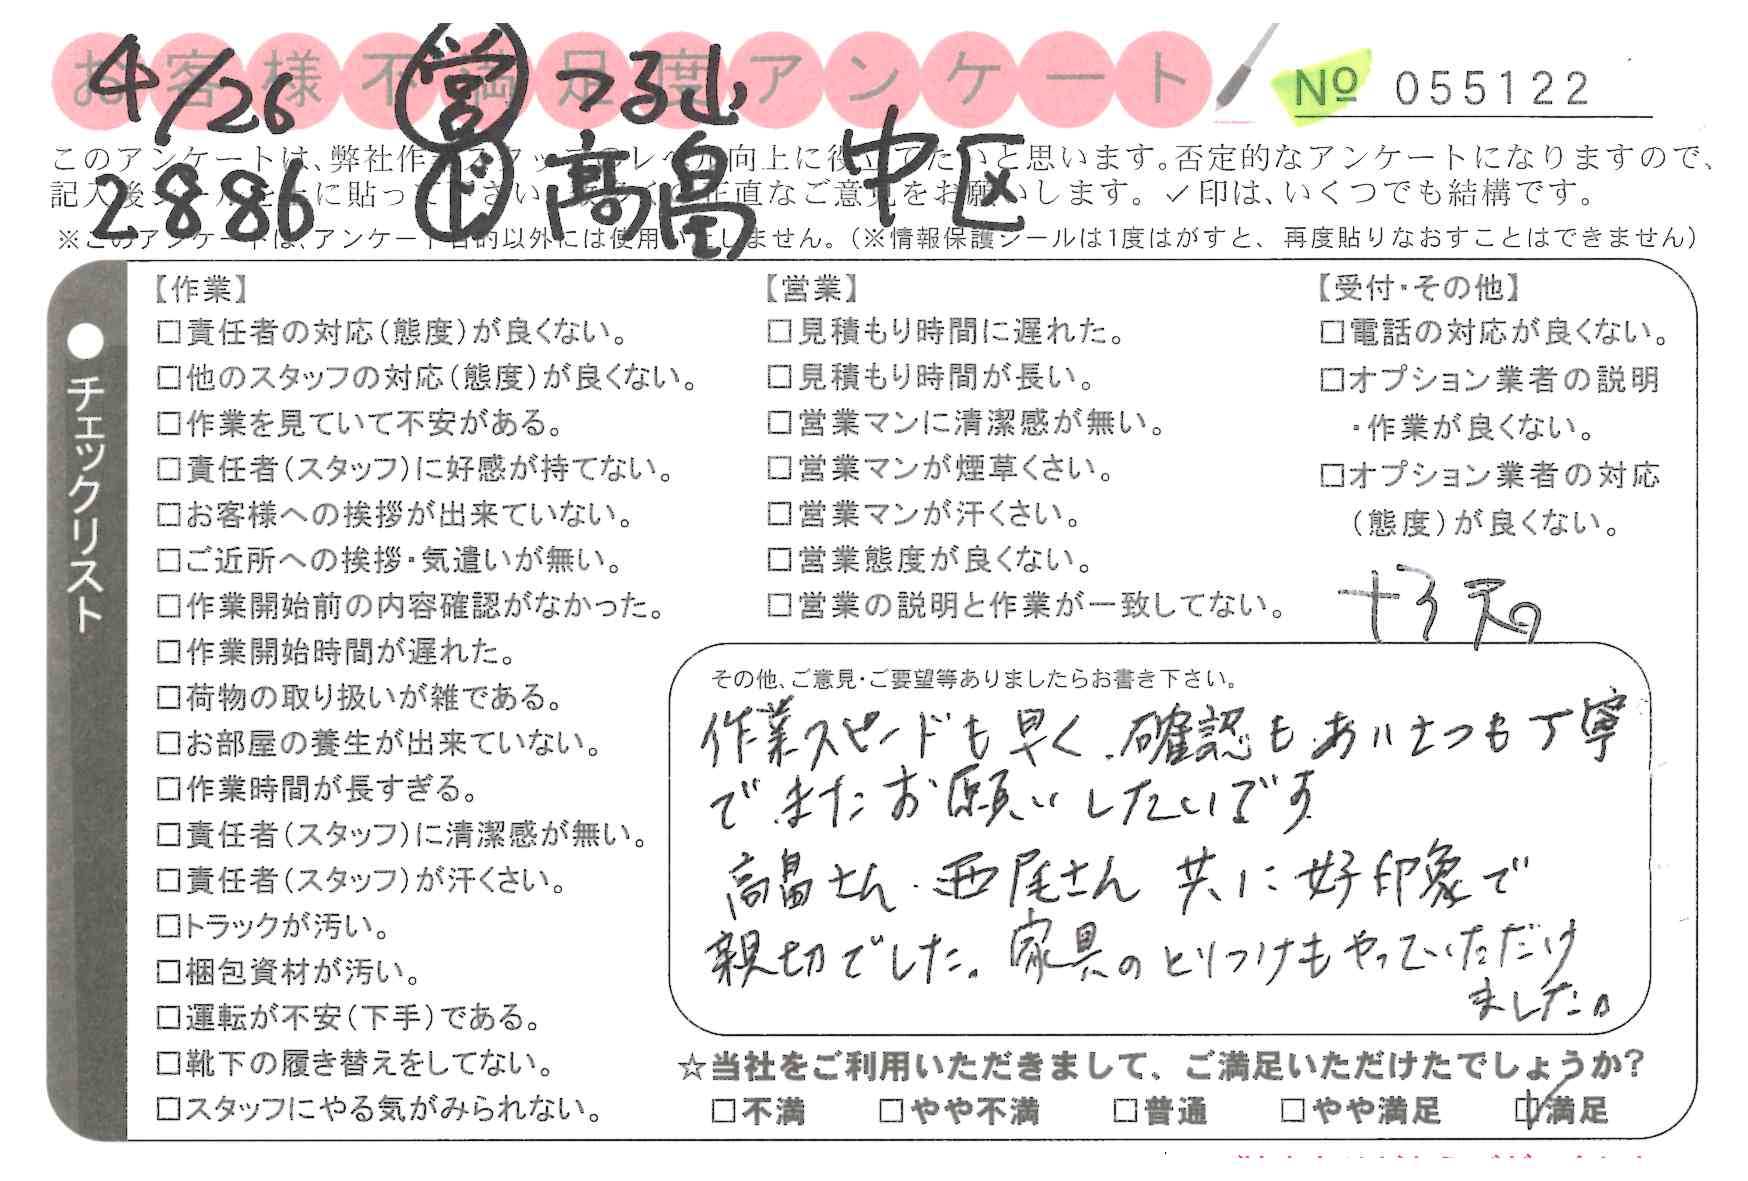 お客様不満足度アンケート
№ 055122
4/26 営 つる山
2886 ド 高畠 中区
このアンケートは、弊社作業スタッフのレベル向上に役立てたいと思います。否定的なアンケートになりますので、
記入後シールを上に貼って下さい。正直なご意見をお願いします。✓印は、いくつでも結構です。
※このアンケートは、アンケート目的以外には使用いたしません。（※情報保護シールは1度はがすと、再度貼りなおすことはできません）
●チェックリスト
【作業】
□責任者の対応（態度）が良くない。
□他のスタッフの対応（態度）が良くない。
□作業を見ていて不安がある。
□責任者（スタッフ）に好感が持てない。
□お客様への挨拶が出来ていない。
□ご近所への挨拶・気遣いが無い。
□作業開始前の内容確認がなかった。
□作業開始時間が遅れた。
□荷物の取り扱いが雑である。
□お部屋の養生が出来ていない。
□作業時間が長すぎる。
□責任者（スタッフ）に清潔感が無い。
□責任者（スタッフ）が汗くさい。
□トラックが汚い。
□梱包資材が汚い。
□運転が不安（下手）である。
□靴下の履き替えをしてない。
□スタッフにやる気がみられない。
【営業】
□見積もり時間に遅れた。
□見積もり時間が長い。
□営業マンに清潔感が無い。
□営業マンが煙草くさい。
□営業マンが汗くさい。
□営業態度が良くない。
□営業の説明と作業が一致してない。
【受付・その他】
□電話の対応が良くない。
□オプション業者の説明
・作業が良くない。
□オプション業者の対応
（態度）が良くない。
その他、ご意見・ご要望等ありましたらお書き下さい。
作業スピードも早く、確認もあいさつも丁寧
でまたお願いしたいです
高畠さん・西尾さん 共に好印象で
親切でした。家具のとりつけもやっていただけ
ました。
☆当社をご利用いただきまして、ご満足いただけたでしょうか？
□不満 □やや不満 □普通 □やや満足 ☑満足